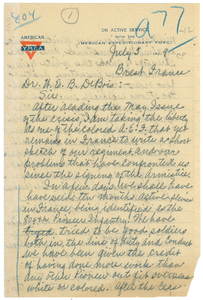 804
1
977
AMERICAN
YMCA
ON ACTIVE SERVICE
WITH THE
AMERICAN EXPEDITIONARY FORCE
July 5
Brest France
Dr. W. D. B. DeBois:-
Sir:-
After reading the May Issue of
the Crisis, I am taking the liberty
as one of the colored A.E.F. that yet
remains in France to write a short
sketch of our regiment, and our
problems that have confronted us
since the signing of the Armistice
In a few days we shall have
have seen ten months active service
in France, being identified as the
Pioneer Infantry. We have
tried to be good soldiers
both in the line of duty and conduct
we have been given the credit
of having done more work than
any other Pioneer outfit overseas
white or colored. After the